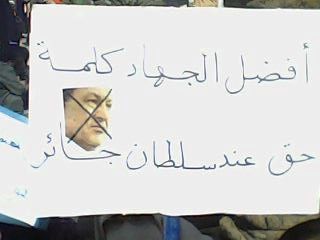 أفضل الجهاد كلمة
حق عند سلطان جائر